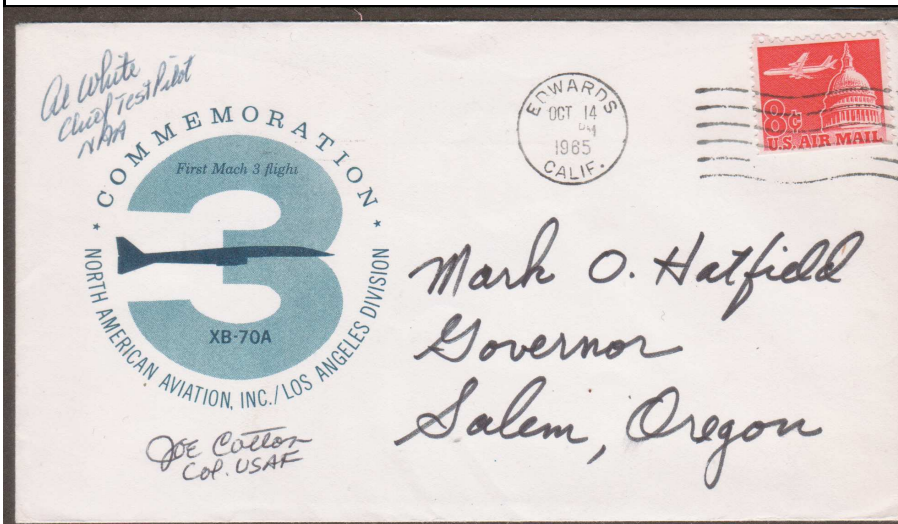 Al White
Chief Test Pilot
NAA
* COMMEMORATION *
First Mach 3 flight
3
XB-70A
NORTH AMERICAN AVIATION, INC./LOS ANGELES DIVISION
Joe Cotton
Col. USAF
EDWARDS
OCT 14
PM
1965
CALIF.
8¢
U.S. AIR MAIL
Mark O. Hatfield
Governor
Salem, Oregon